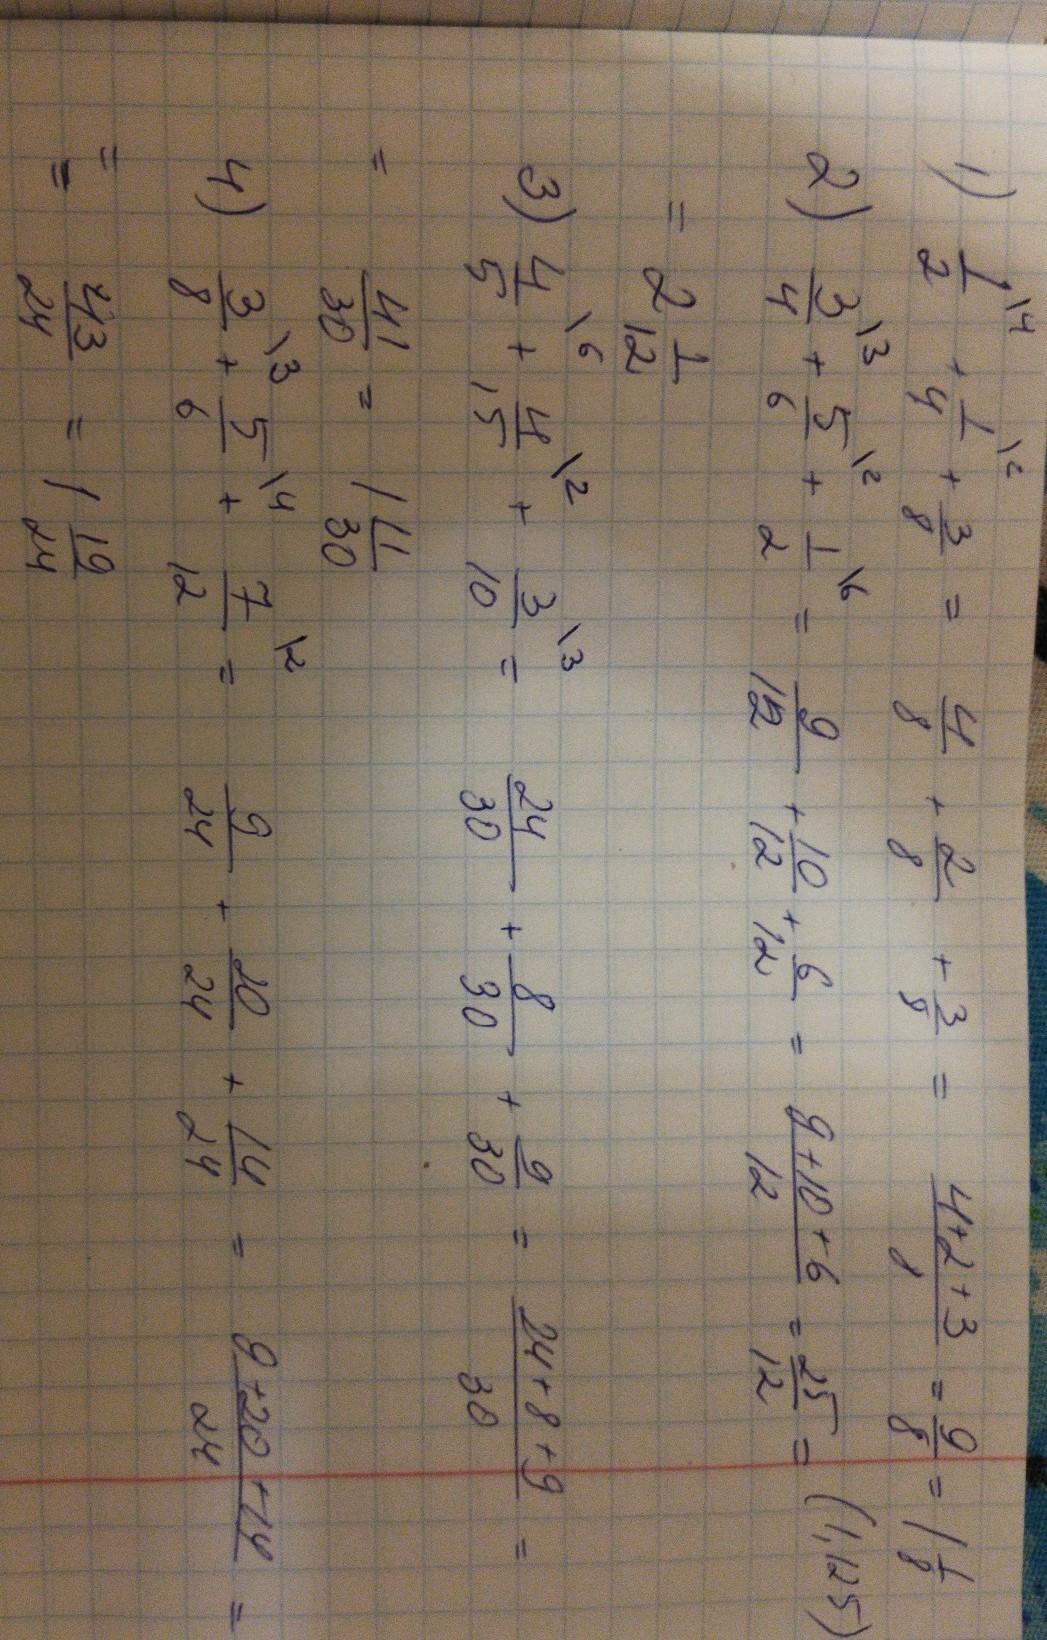 1) 1/2 \4 + 1/4 \2 + 3/8 = 4/8 + 2/8 + 3/8 = 4+2+3/8 = 9/8 = 1 1/8
(1,125)
2) 3/4 \3 + 5/6 \2 + 1/2 \6 = 9/12 + 10/12 + 6/12 = 9+10+6/12 = 25/12 =
= 2 1/12
3) 4/5 \6 + 4/15 \2 + 3/10 \3 = 24/30 + 8/30 + 9/30 = 24+8+9/30 =
= 41/30 = 1 11/30
4) 3/8 \3 + 5/6 \4 + 7/12 \2 = 9/24 + 20/24 + 14/24 = 9+20+14/24 =
= 43/24 = 1 19/24